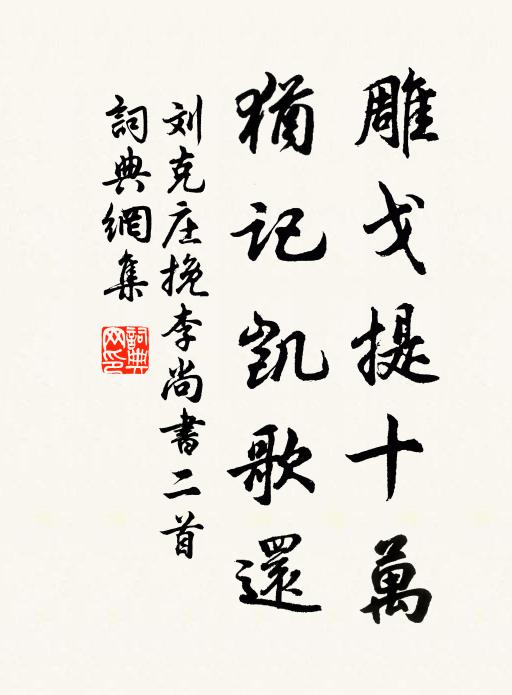 雕戈提十萬
猶記凱歌還
刘克庄挽李尚書二首
詞典網集
詞典网印